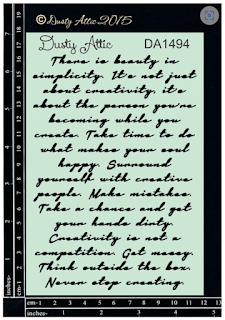 © Dusty Attic 2015
Dusty Attic DA1494
There is beauty in
simplicity. It's not just
about creativity, it's
about the person you're
becoming while you
create. Take time to do
what makes your soul
happy. Surround
yourself with creative
people. Make mistakes.
Take a chance and get
your hands dirty.
Creativity is not a
competition. Get messy.
Think outside the box.
Never stop creating
inches- 1 2 3 4 5 6 7
cm-1 2 3 4 5 6 7 8 9 10 11 12 13 14 15 16 17 18 19
cm-1 2 3 4 5 6 7 8 9 10 11 12 13
inches- 1 2 3 4 5